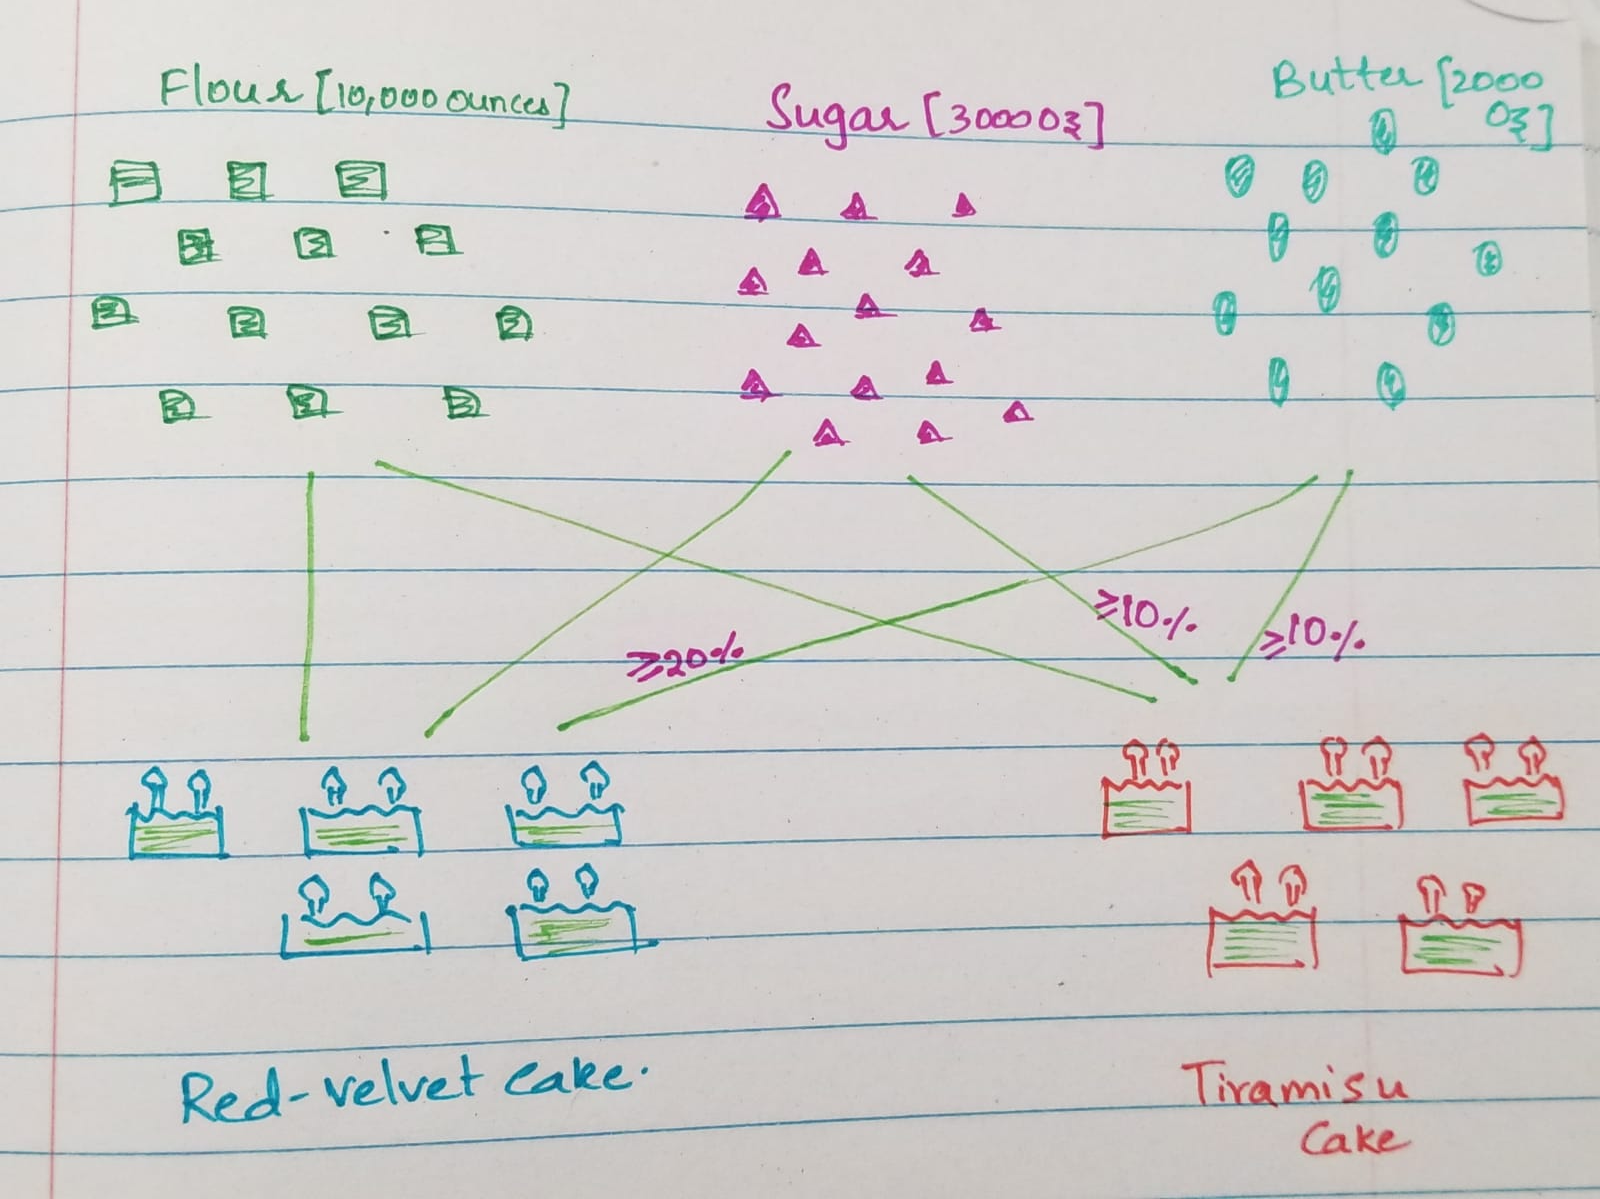 Flour [10,000 ounces]
Sugar [30000z]
Butter [2000
0z]
≥20%
≥10%
≥10%
Red-velvet cake.
Tiramisu
Cake